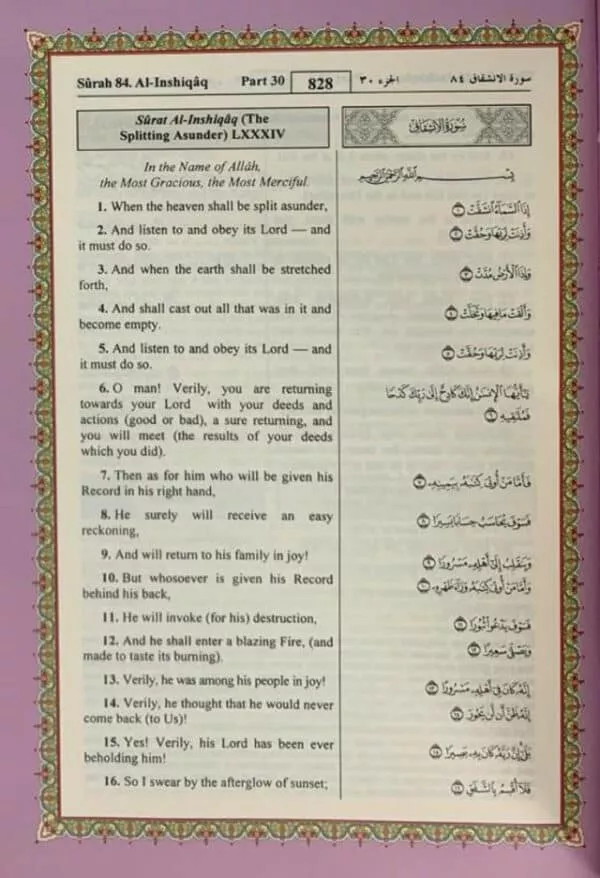 Sûrah 84. Al-Inshiqâq Part 30 828 الجزء ٣٠ سورة الانشقاق ٨٤
Sûrat Al-Inshiqâq (The
Splitting Asunder) LXXXIV
In the Name of Allâh,
the Most Gracious, the Most Merciful.
1. When the heaven shall be split asunder,
2. And listen to and obey its Lord — and
it must do so.
3. And when the earth shall be stretched
forth,
4. And shall cast out all that was in it and
become empty.
5. And listen to and obey its Lord — and
it must do so.
6. O man! Verily, you are returning
towards your Lord with your deeds and
actions (good or bad), a sure returning, and
you will meet (the results of your deeds
which you did).
7. Then as for him who will be given his
Record in his right hand,
8. He surely will receive an easy
reckoning,
9. And will return to his family in joy!
10. But whosoever is given his Record
behind his back,
11. He will invoke (for his) destruction,
12. And he shall enter a blazing Fire, (and
made to taste its burning).
13. Verily, he was among his people in joy!
14. Verily, he thought that he would never
come back (to Us)!
15. Yes! Verily, his Lord has been ever
beholding him!
16. So I swear by the afterglow of sunset;
سُورَةُ الانْشِقَاقِ
بِسْمِ اللَّهِ الرَّحْمَٰنِ الرَّحِيمِ
إِذَا ٱلسَّمَآءُ ٱنشَقَّتْ ١
وَأَذِنَتْ لِرَبِّهَا وَحُقَّتْ ٢
وَإِذَا ٱلْأَرْضُ مُدَّتْ ٣
وَأَلْقَتْ مَا فِيهَا وَتَخَلَّتْ ٤
وَأَذِنَتْ لِرَبِّهَا وَحُقَّتْ ٥
يَٰٓأَيُّهَا ٱلْإِنسَٰنُ إِنَّكَ كَادِحٌ إِلَىٰ رَبِّكَ كَدْحًا
فَمُلَٰقِيهِ ٦
فَأَمَّا مَنْ أُوتِىَ كِتَٰبَهُۥ بِيَمِينِهِۦ ٧
فَسَوْفَ يُحَاسَبُ حِسَابًا يَسِيرًا ٨
وَيَنقَلِبُ إِلَىٰٓ أَهْلِهِۦ مَسْرُورًا ٩
وَأَمَّا مَنْ أُوتِىَ كِتَٰبَهُۥ وَرَآءَ ظَهْرِهِۦ ١٠
فَسَوْفَ يَدْعُوا۟ ثُبُورًا ١١
وَيَصْلَىٰ سَعِيرًا ١٢
إِنَّهُۥ كَانَ فِىٓ أَهْلِهِۦ مَسْرُورًا ١٣
إِنَّهُۥ ظَنَّ أَن لَّن يَحُورَ ١٤
بَلَىٰٓ إِنَّ رَبَّهُۥ كَانَ بِهِۦ بَصِيرًا ١٥
فَلَآ أُقْسِمُ بِٱلشَّفَقِ ١٦